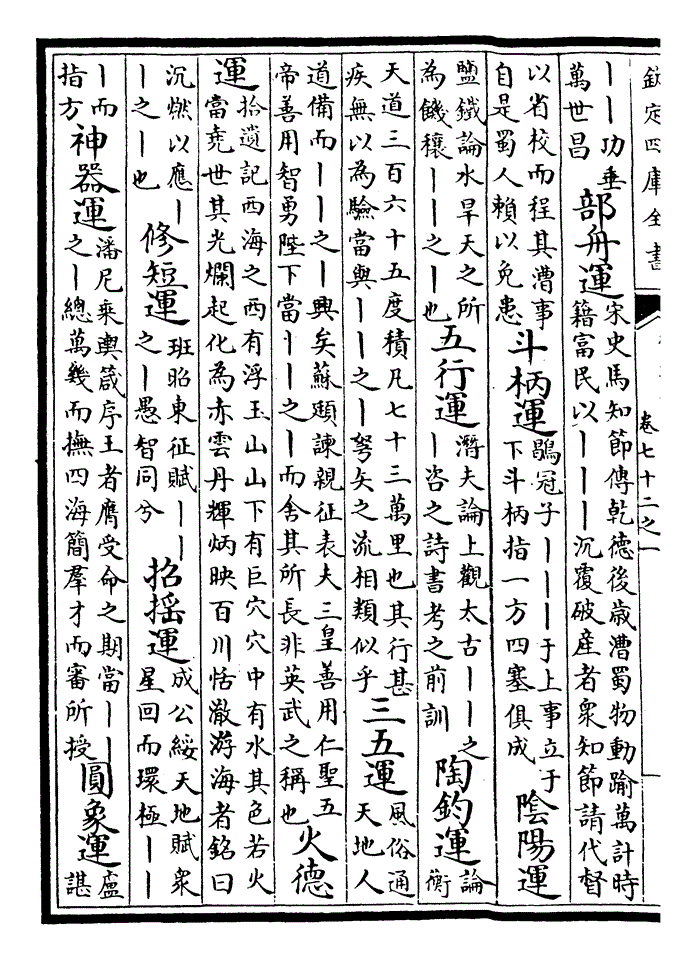 欽定四庫全書
卷七十二之一
｜｜功垂
萬世昌
部舟運
宋史馬知節傳乾德後歲漕蜀物動踰萬計時
籍富民以｜｜｜沉覆破産者衆知節請代督
以省校而程其漕事
自是蜀人賴以免患
斗柄運
鶡冠子｜｜｜于上事立于
下斗柄指一方四塞俱成
陰陽運
鹽鐵論水旱天之所
為饑穰｜｜之｜也
五行運
潛夫論上觀太古｜｜之
｜咨之詩書考之前訓
陶鈞運
論
衡
天道三百六十五度積凡七十三萬里也其行甚
疾無以為驗當與｜｜之｜弩矢之流相類似乎
三五運
風俗通
天地人
道備而｜｜之｜興矣蘇頲諫親征表夫三皇善用仁聖五
帝善用智勇陛下當｜｜之｜而舍其所長非英武之稱也
火德
運
拾遺記西海之西有浮玉山山下有巨穴穴中有水其色若火
當堯世其光爛起化為赤雲丹輝炳映百川恬澈游海者銘曰
沉燃以應｜
｜之｜也
修短運
班昭東征賦｜｜
之｜愚智同兮
招揺運
成公綏天地賦衆
星回而環極｜｜
｜而
指方
神器運
潘尼乘輿箴序王者膺受命之期當｜｜
之｜總萬幾而撫四海簡羣才而審所授
圓象運
盧
諶